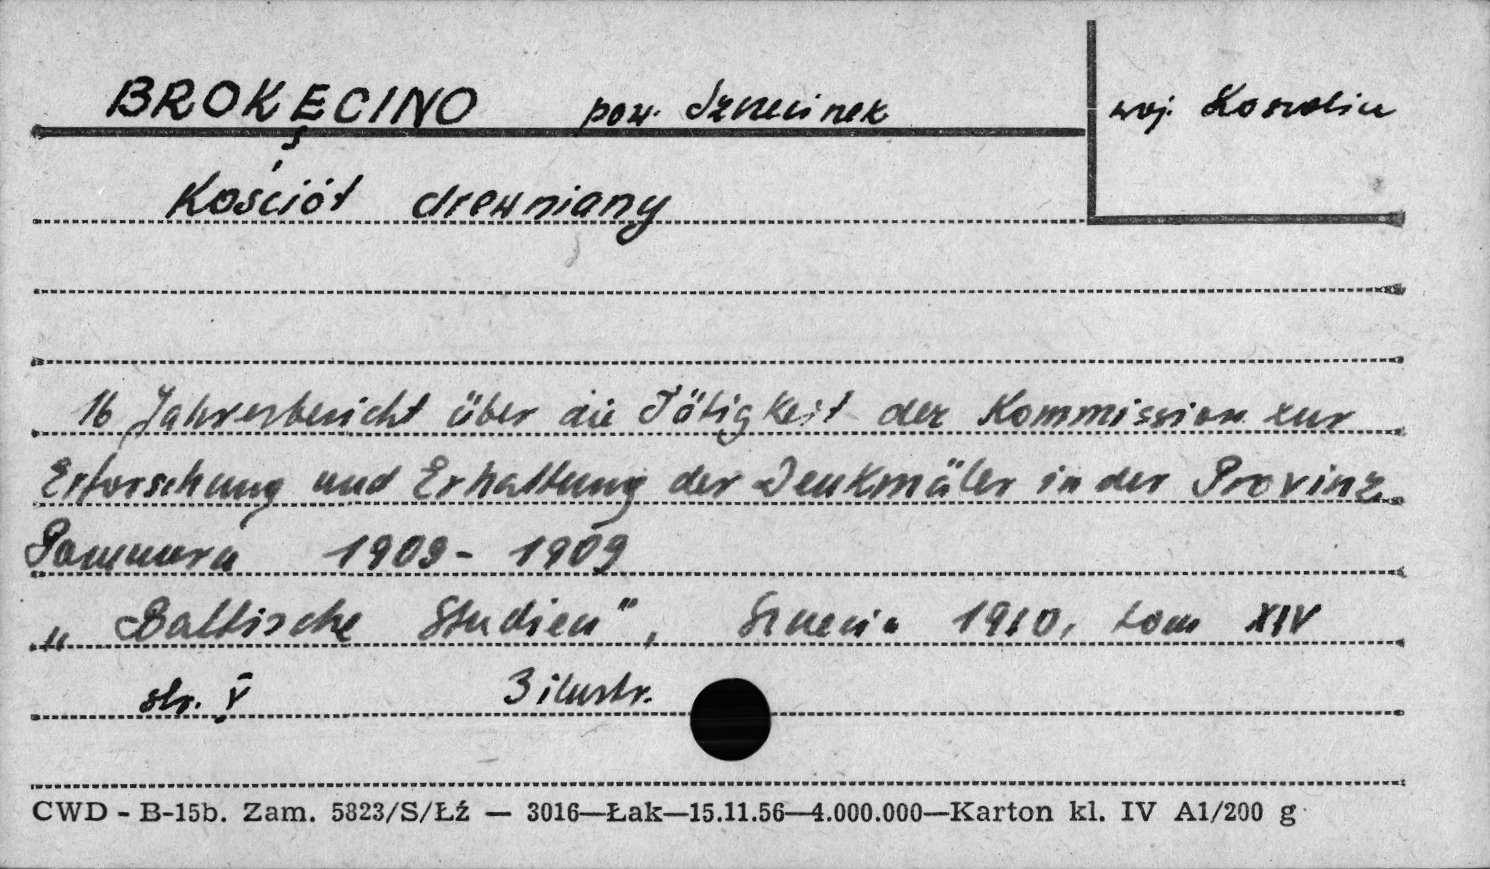 BROKĘCINO pow. Szczecinek woj. Koszalin
Kościół drewniany
16 Jahresbericht über die Tätigkeit der Kommission zur
Erforschung und Erhaltung der Denkmäler in der Provinz
Pommern 1909-1909
„Baltische Studien", Szczecin 1910, tom XIV
str. V 3 ilustr.
CWD - B-15b. Zam. 5823/S/Łź — 3016—Łak—15.11.56—4.000.000—Karton kl. IV A1/200 g